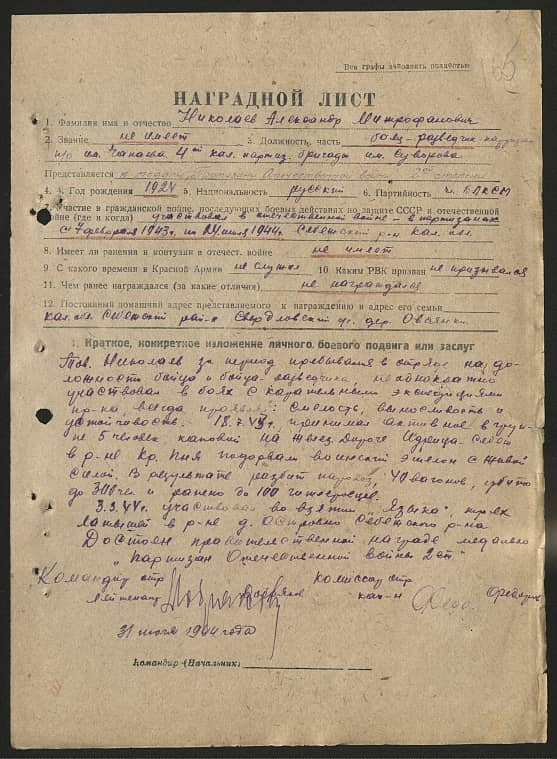 Все графы заполнять полностью
НАГРАДНОЙ ЛИСТ
1. Фамилия имя и отчество Николаев Александр Митрофанович
2. Звание не имеет 3. Должность, часть боец-разведчик
им. Чапаева 4й кал. партиз. бригады им. Суворова
Представляется к медали Партизану Отечественной войны 2й степени
4. 4. Год рождения 1924 5. Национальность русский 6. Партийность ч. ВЛКСМ
Участие в гражданской войне, последующих боевых действиях по защите СССР и отечественной
войне (где и когда) участвовал в отечественной войне в партизанах
с 7 февраля 1943 г. по 24 июля 1944 г. Себежский р-н Кал. обл.
8. Имеет ли ранения и контузии в отечест. войне не имеет
9 С какого времени в Красной Армии не служил 10 Каким РВК призван не призывался
11. Чем ранее награждался (за какие отличия) не награждался
12 Постоянный домашний адрес представляемого к награждению и адрес его семьи
Кал. обл. Себежский рай-н Свердловский дер. Овсянки
1. Краткое, конкретное изложение личного боевого подвига или заслуг
Тов. Николаев за период пребывания в отряде на до-
лжности бойца и бойца-разведчика, неоднократно
участвовал в боях с карательными экспедициями
пр-ка, всегда проявлял смелость, выносливость и
устойчивость. принимал активное в груп-
пе 5 человек на Желез. Дороге Идрица-Себеж
в р-не Кр. Пня подорван воинский эшелон с живой
силой. В результате разбит паровоз, 40 вагонов, убито
до 300 чел и ранено до 100 гитлеровцев.
3.3.44 г. участвовал во взятии „Языка", трёх
латышей в р-не д. Островно Себежского р-на
Достоен правительственной награде медалью
„Партизан Отечественной войны 2 ст"
Командир отр
лейтенант
Комиссар отр
кап-н
31 июля 1944 года
Командир (Начальник)